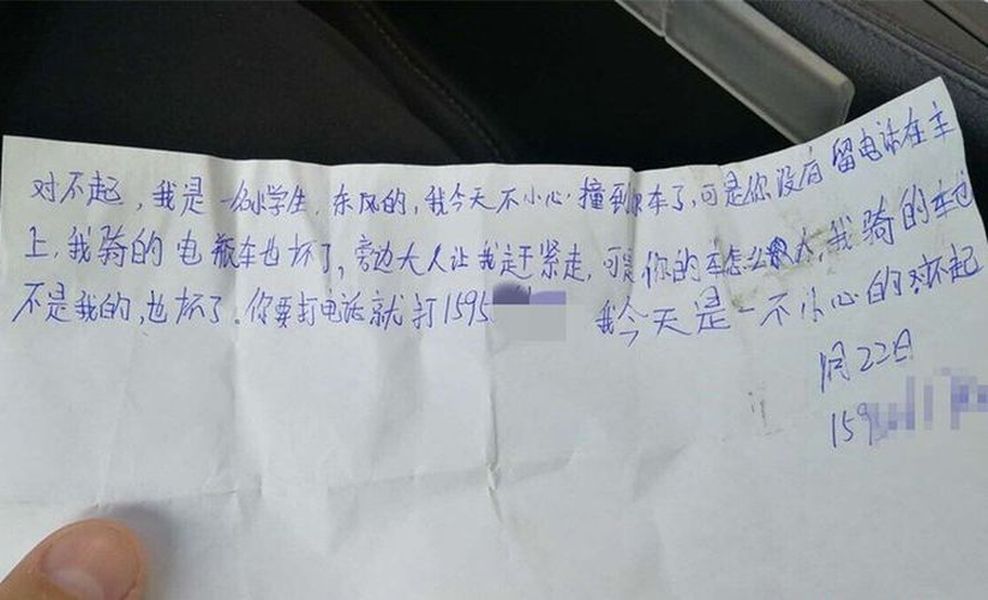 对不起,我是一名小学生.东风的,我今天不小心撞到你车了,可是你没有留电话在车
上,我骑的电瓶车也坏了,旁边大人让我赶紧走,可是你的车怎么办,我骑的车也
不是我的,也坏了.你要打电话就打1595 我今天是一不小心的对不起
月22日
159